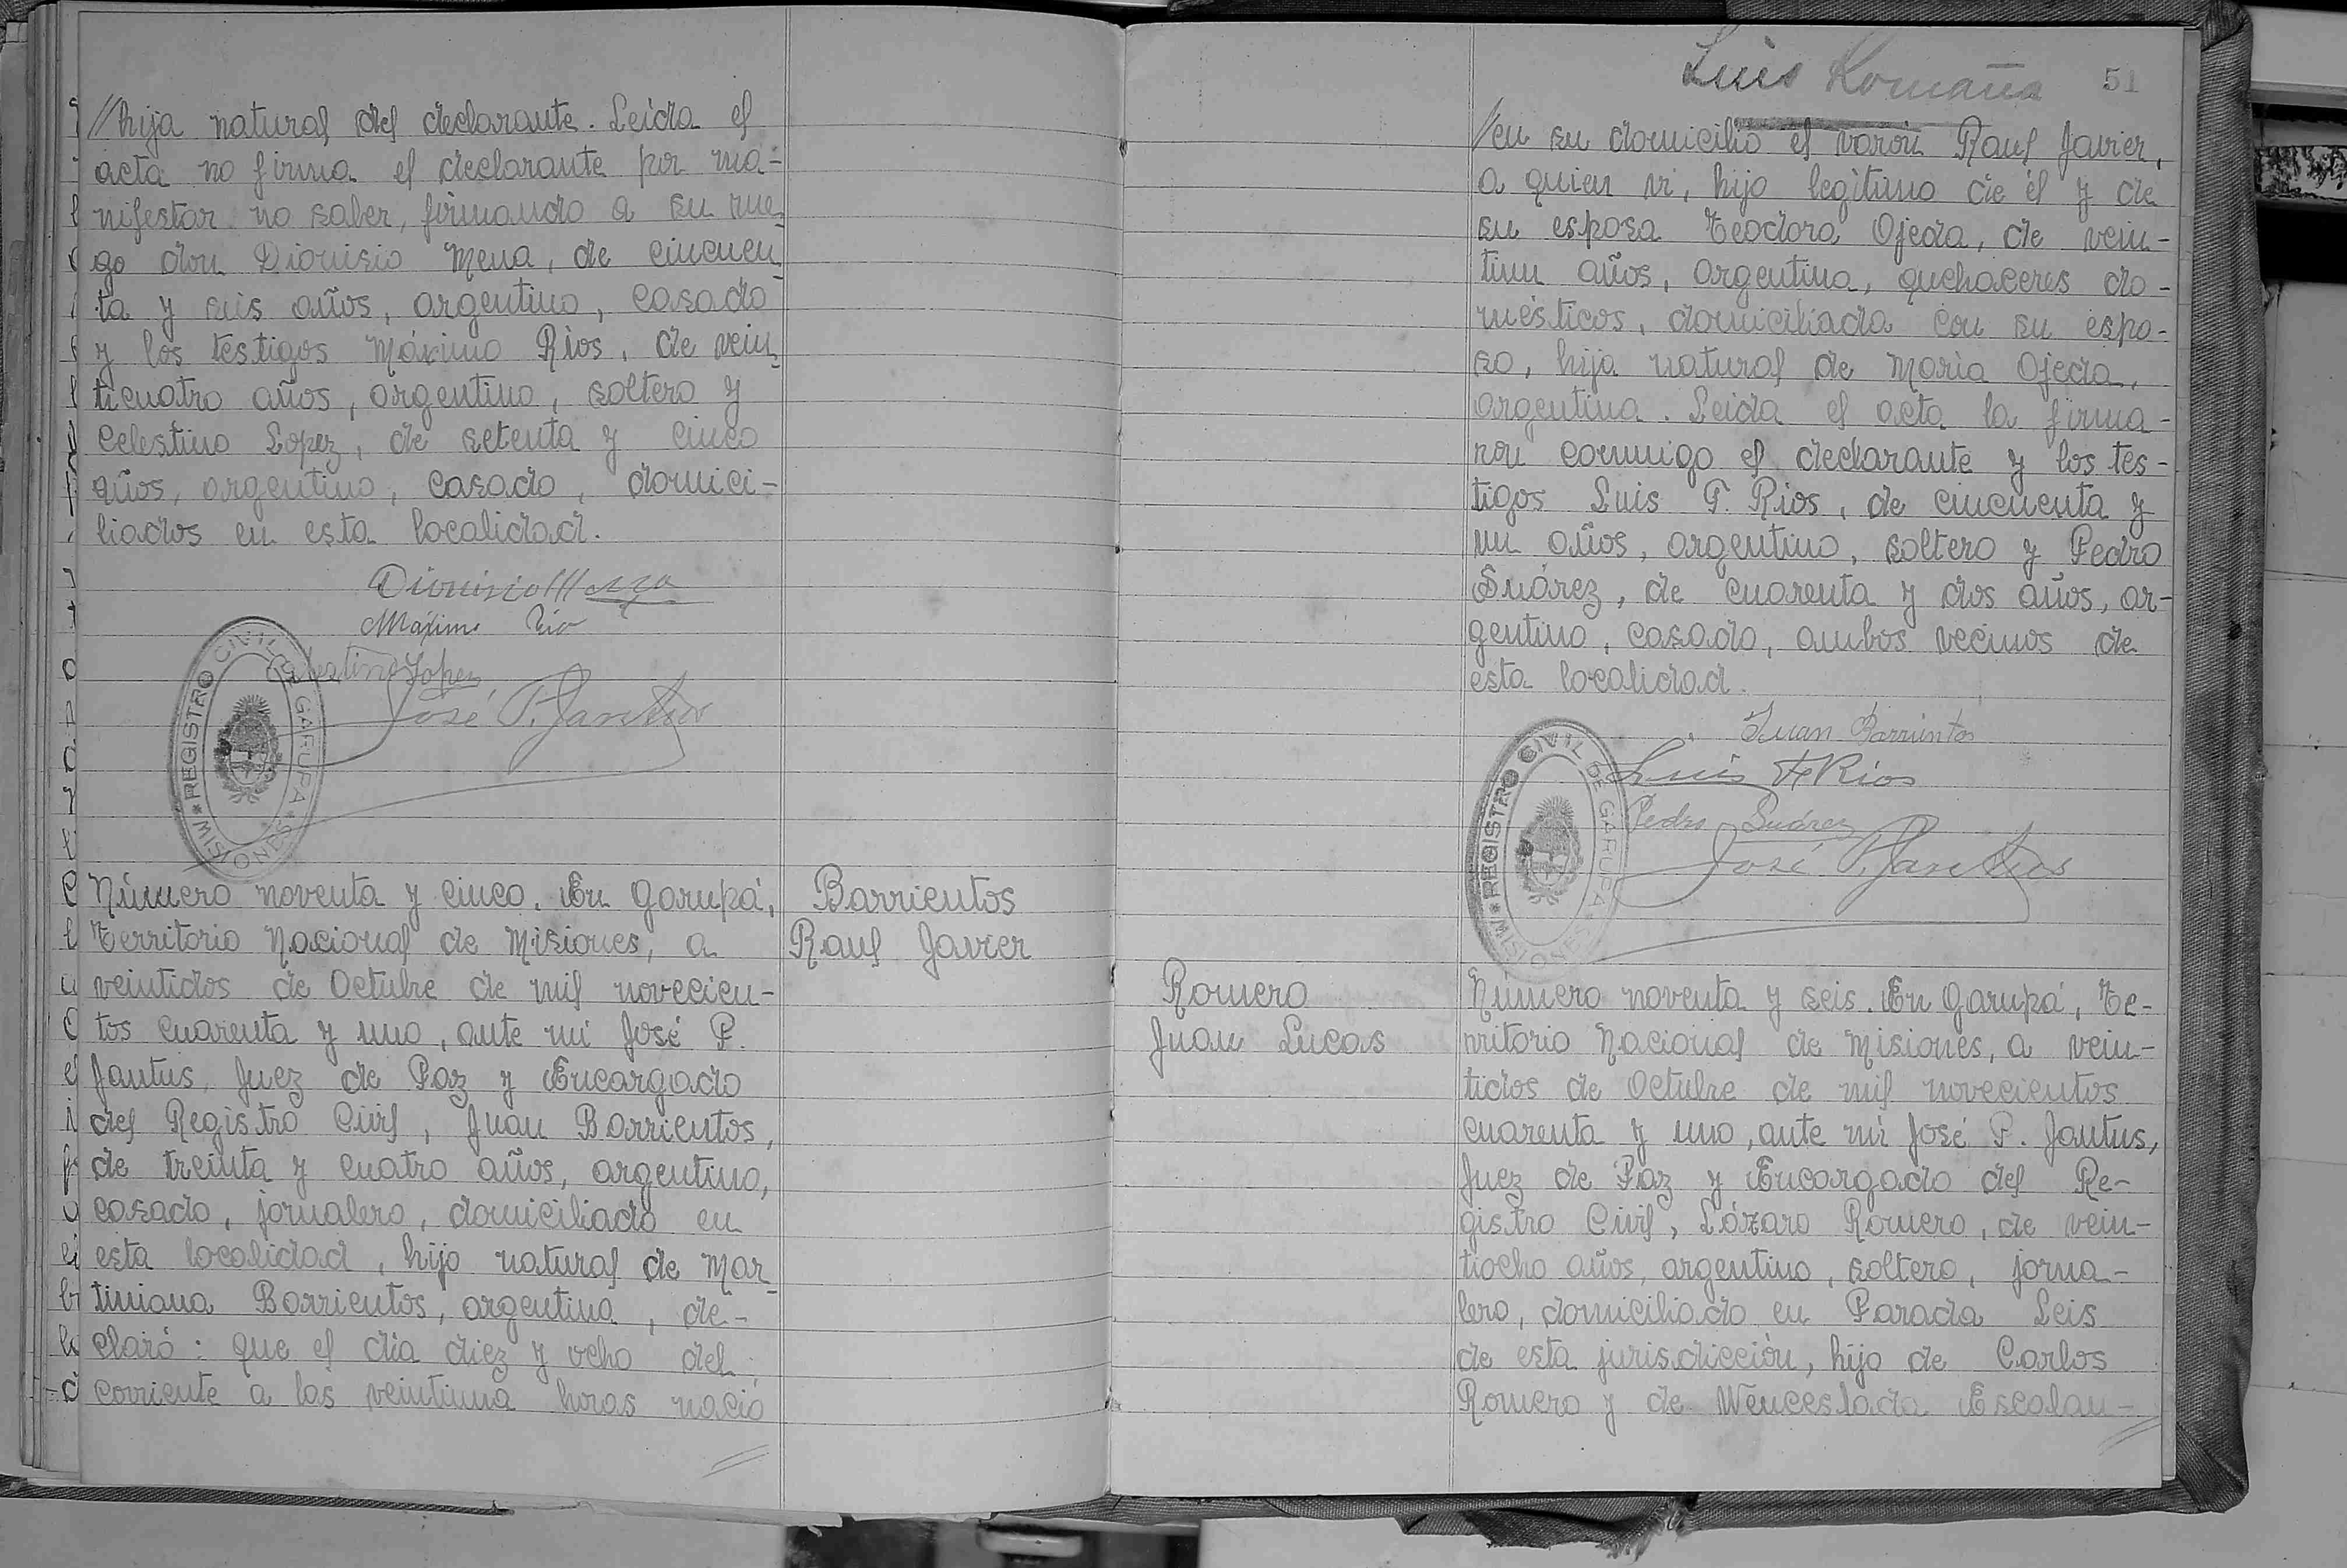 //hija natural del declarante. Leída el
acta no firma el declarante por ma-
nifestar no saber, firmando a su rue-
go don Dionisio Mena, de cincuen-
ta y seis años, argentino, casado
y los testigos Máximo Ríos, de vein-
ticuatro años, argentino, soltero y
Celestino Lopez, de setenta y cinco
años, argentino, casado, domici-
liados en esta localidad.
Dionisio Mena
Máximo Rio
Celestino Lopez
José P. Jantus
REGISTRO CIVIL DE GARUPA * MISIONES *
Número noventa y cinco. En Garupá,
Territorio Nacional de Misiones, a
veintidos de Octubre de mil novecien-
tos cuarenta y uno, ante mí José P.
Jantus, Juez de Paz y Encargado
del Registro Civil, Juan Barrientos,
de treinta y cuatro años, argentino,
casado, jornalero, domiciliado en
esta localidad, hijo natural de Mar-
tiniana Barrientos, argentina, de-
claró: que el día diez y ocho del
corriente a las veintiuna horas nació
//
Barrientos
Raul Javier
Luis Romaña
51
/en su domicilio el varón Raul Javier,
a quien vi, hijo legítimo de él y de
su esposa Teodora Ojeda, de vein-
tiun años, argentina, quehaceres do-
mésticos, domiciliada con su espo-
so, hija natural de María Ojeda,
argentina. Leida el acta la firma-
ron conmigo el declarante y los tes-
tigos Luis F. Rios, de cincuenta y
un años, argentino, soltero y Pedro
Suárez, de cuarenta y dos años, ar-
gentino, casado, ambos vecinos de
esta localidad.
Juan Barrientos
Luis F. Rios
Pedro Suárez
José P. Jantus
REGISTRO CIVIL DE GARUPA * MISIONES *
Romero
Juan Lucas
Número noventa y seis. En Garupá, Te-
rritorio Nacional de Misiones, a vein-
tidos de Octubre de mil novecientos
cuarenta y uno, ante mí José P. Jantus,
Juez de Paz y Encargado del Re-
gistro Civil, Lázaro Romero, de vein-
tiocho años, argentino, soltero, jorna-
lero, domiciliado en Parada Leis
de esta jurisdicción, hijo de Carlos
Romero y de Wenceslada Escalan-
//